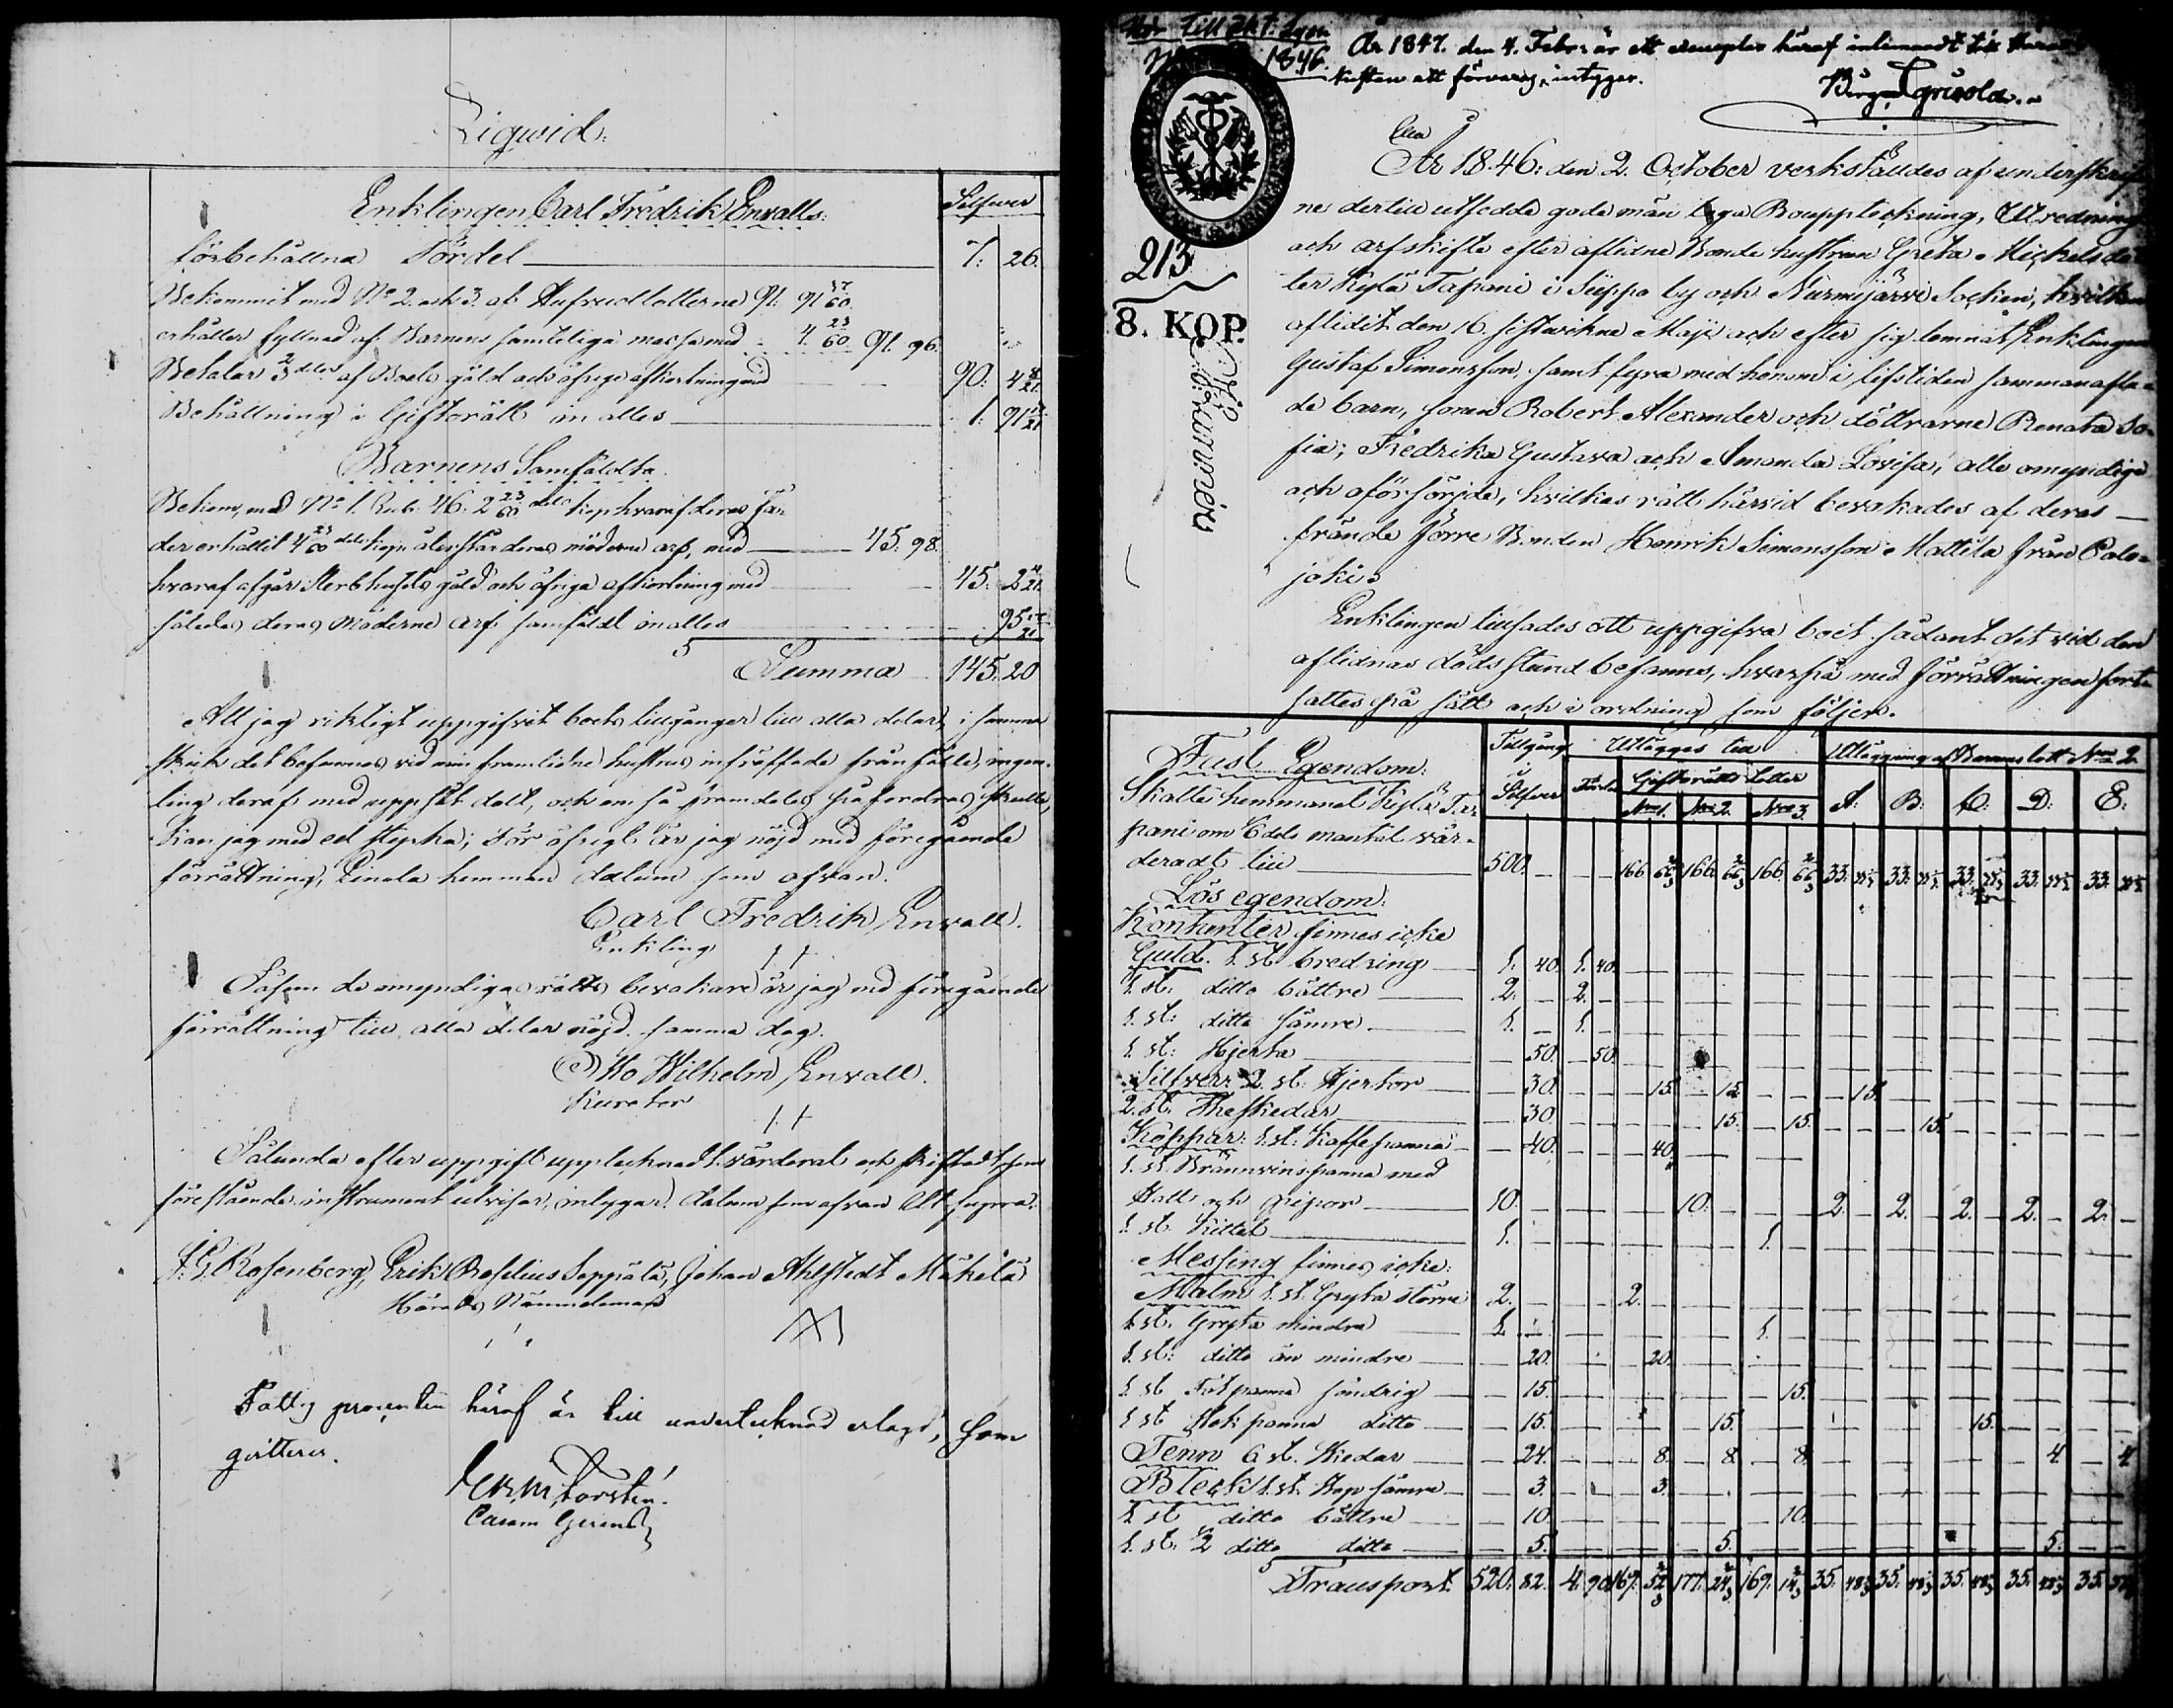 Liqwid:
Silfwer
Enklingen Carl Fredrik Envalls:
förbehållna Fördel 7. 26.
Bekommit med No 2. och 3. af Hufvudlotterne 91. 91 37/60
erhåller fyllnad af Barnens samteliga massa med 4. 23/60 91. 96.
Betalar 2/3 delar af Boets gäld och öfrige afkortning med 90. 4 8/21
Behållning i Giftorätt in alles 1. 91 13/21
Barnens Samfäldta
Bekom, med No 1. Rub. 46. 2 23/60 dels kop hvaraf deras Fa-
der erhållit 4 23/60 dels kopr återstår deras möderne arf, med 45. 98.
hvaraf afgår Sterbhusets gäld och öfriga afkortning med 45. 2 4/21
således deras Möderne Arf samfäldt in alles 95 17/21
Summa 145. 20
Att jag riktigt uppgifvit boets tillgångar till alla delar, i samma
skick det befannes vid min framlidne hustrus inträffade frånfälle, ingen-
ting deraf med uppsåt dolt, och om så framdeles påfordras skulle,
kan jag med ed styrka; För öfrigt är jag nöjd med föregående
förrättning, Linola hemman datum som ofvan.
Carl Fredrik Envall.
Enkling
Såsom de omyndigas rätts bevakare är jag med föregående
förrättning till alla delar nöjd. samma dag.
Otto Wilhelm Envall.
Kurator
Sålunda efter uppgift upptecknadt värderat och skiftadt som
förestående instrument utvisar, intygar. datum som ofvan Ut supra.
F. G. Rosenberg, Erik Roselius Seppälä, Johan Ahlstedt Mäkelä
Härads Nämndeman
Fattig procenten häraf är till undertecknad erlagd, som
qvitteras.
Forstén.
Hör till Akt: Lgon
1846.
År 1847. den 4. Febr. är ett exemplar häraf inlemnadt till Härads
kisten att förvaras, intygar.
213
8. KOP.
År 1846: den 2. October verkställdes af underskrif
ne dertill utsedde gode män laga Bouppteckning, Utredning
och arfskifte efter aflidne Bonde hustrun Greta Michelsdo-
ter Kylä Tapani i Siippo by och Nurmijärvi Socken, hvilken
aflidit den 16. sistvikne Maji och efter sig lemnat Enklingen
Gustaf Simonsson, samt fyra med honom i lifstiden sammanafla-
de barn, sonen Robert Alexander och döttrarne Renata So-
fia, Fredrika Gustava och Amanda Lovisa, alla omyndiga
och oförsörjde, hvilkas rätt härvid bevakades af deras
frände förre Bonden Henrik Simonsson Mattila från Palo-
joki.
Enklingen tillsades att uppgifva boet sådant det vid den
aflidnas dödsstund befanns, hvarpå med förrättningen fort-
sattes på sätt och i ordning som följer.
Tillgång i Silfver
Utlägges till
Fördel
Giftorätts Lotter
No 1. No 2. No 3.
Utläggning af Barnens lott No 2
A: B: C: D: E:
Fast Egendom:
Skatte hemmanet Kylä Ta-
pani om 6 dels mantal vär-
deradt till 500. — — — 166. 66 2/3 166. 66 2/3 166. 66 2/3 33. 33 1/3 33. 33 1/3 33. 33 1/3 33. 33 1/3 33. 33 1/3
Lös egendom:
Kontanter finnes icke
Guld. 1. st. bredring 1. 40. 1. 40.
1. st: ditto bättre 2. — 2. —
1. st: ditto sämre 1. — 1. —
1. st: Hjerta — 50. — 50.
Silfver 2. st. Hjertor — 30. 15. 15. 15.
2. st. Theskedar — 30. 15. 15. 15.
Koppar: 1. st: Kaffepanna — 40. 40.
1. st. Brännvinspanna med
Hatt och pipor 10. — 10. — 2. — 2. — 2. — 2. — 2. —
1. st. Kittel 1. — 1. —
Messing finnes icke:
Malm 1. st. Gryta större 2. — 2. —
1. st. Gryta mindre 1. — 1. —
1. st: ditto än mindre — 20. 20.
1. st Fotpanna söndrig — 15. 15.
1 st Stekpanna ditto — 15. 15. 15.
Tenn 6 st. Skedar — 24. 8. 8. 8. 4. 4
Bleck 1. st. Stop sämre — 3. 3.
1 st ditto bättre — 10. 10.
1. st. 1/2 ditto ditto — 5. 5. 5.
Transport 520. 82. 4. 90. 167. 52 2/3 177. 24 2/3 169. 14 2/3 35. 48 1/3 35. 48 1/3 35. 48 1/3 35. 35.